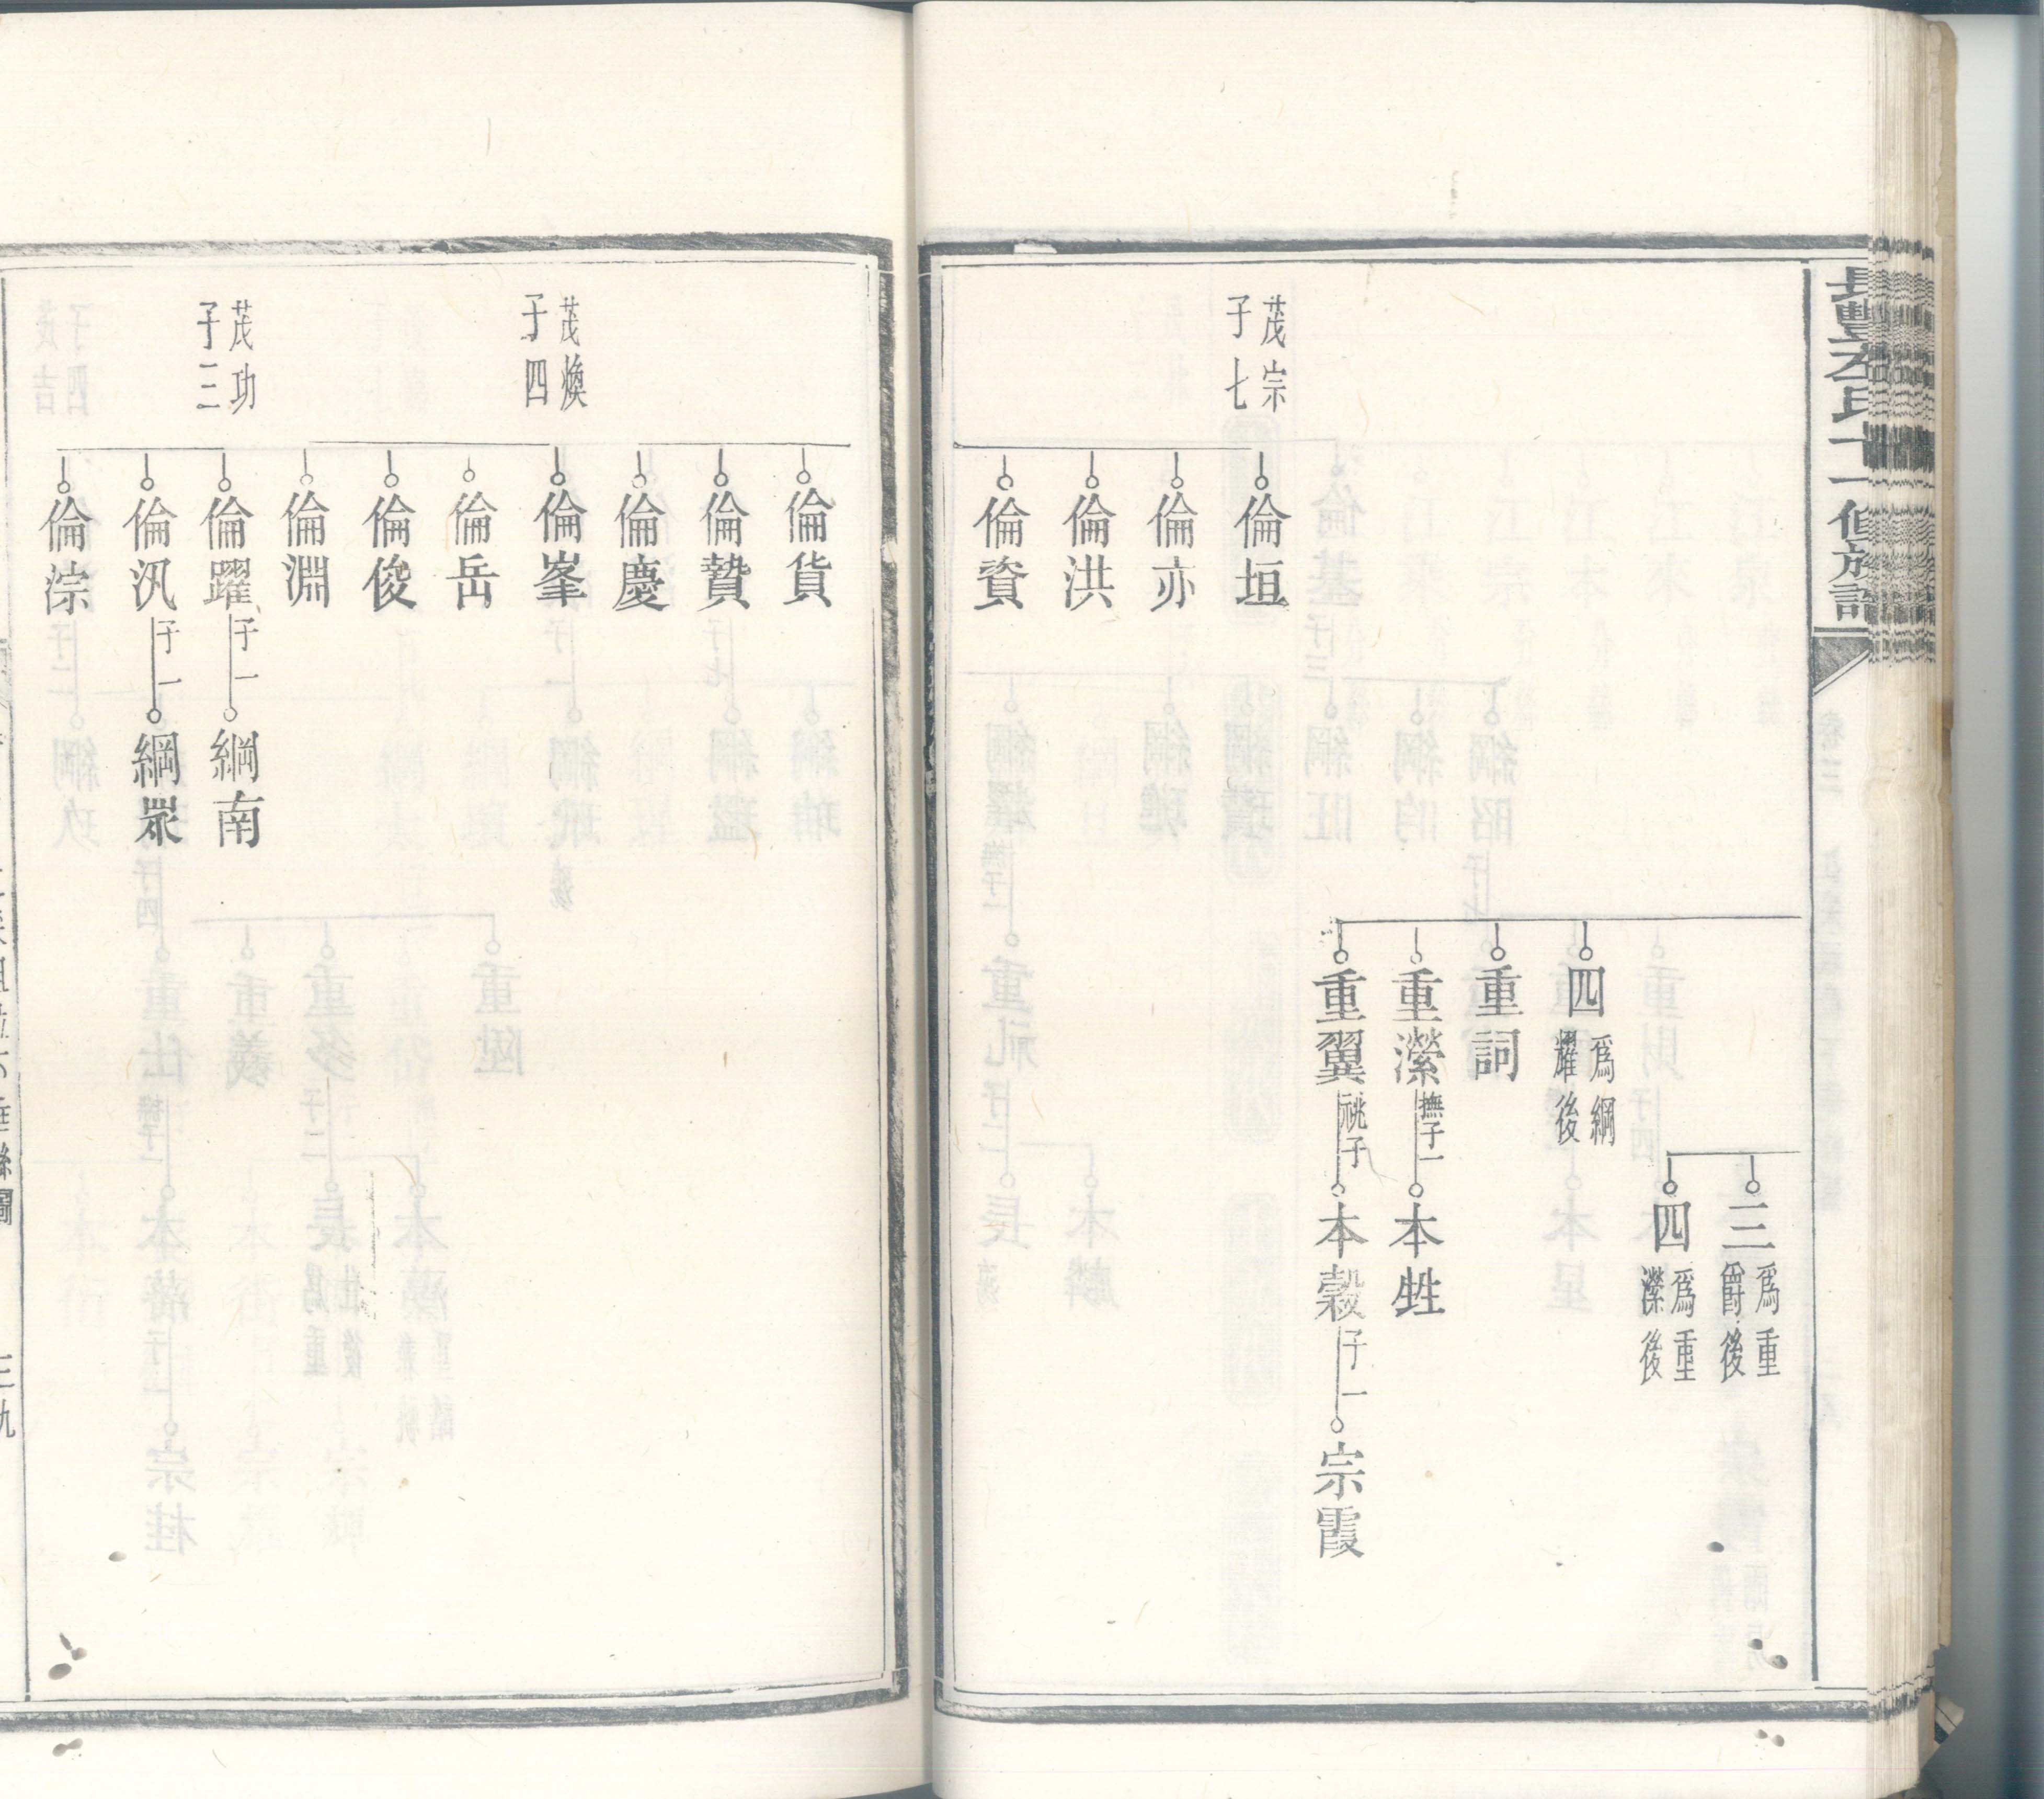 長豐左氏十一修族譜
三 爲重爵後
四 爲重濼後
四 爲綱耀後
重詞
重濼 撫子一 本甡
重翼 祧子 本穀 子一 宗霞
茂宗 子七
倫垣
倫亦
倫洪
倫資
倫貨
倫贄
倫慶
茂煥 子四
倫峯
倫岳
倫俊
倫淵
茂功 子三
倫躍 子一 綱南
倫汎 子一 綱眾
倫淙